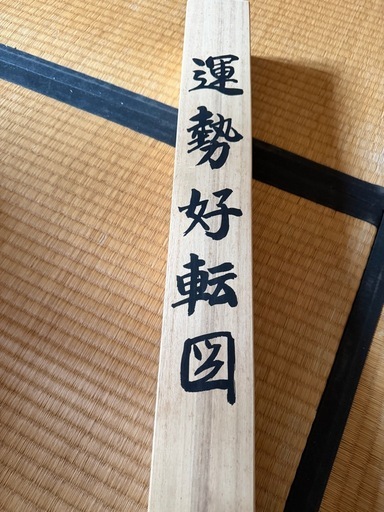 運勢好転図